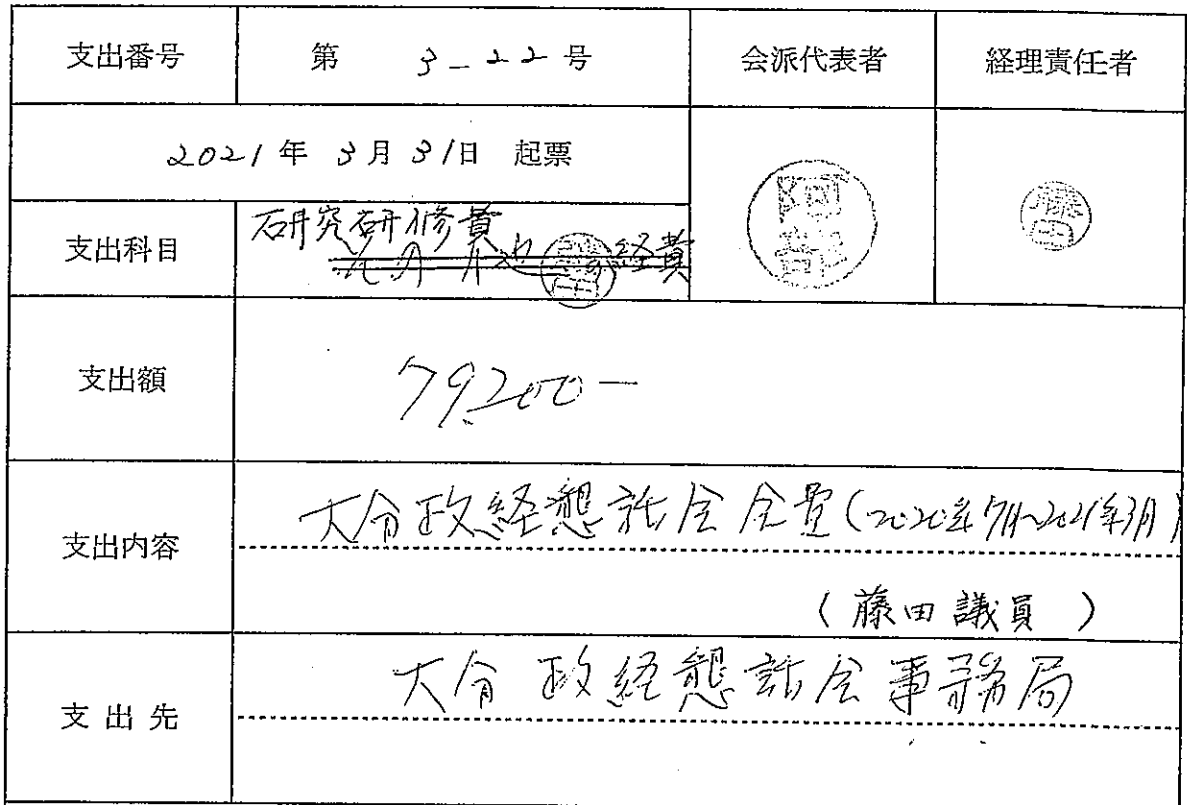 支出番号 第 3-22 号 会派代表者 経理責任者
2021年 3月 31日 起票
支出科目 研究研修費
経費
藤田
支出額 79,200-
支出内容 大分政経懇話会 会費(2020年7月~2021年3月)
(藤田議員)
支出先 大分政経懇話会事務局